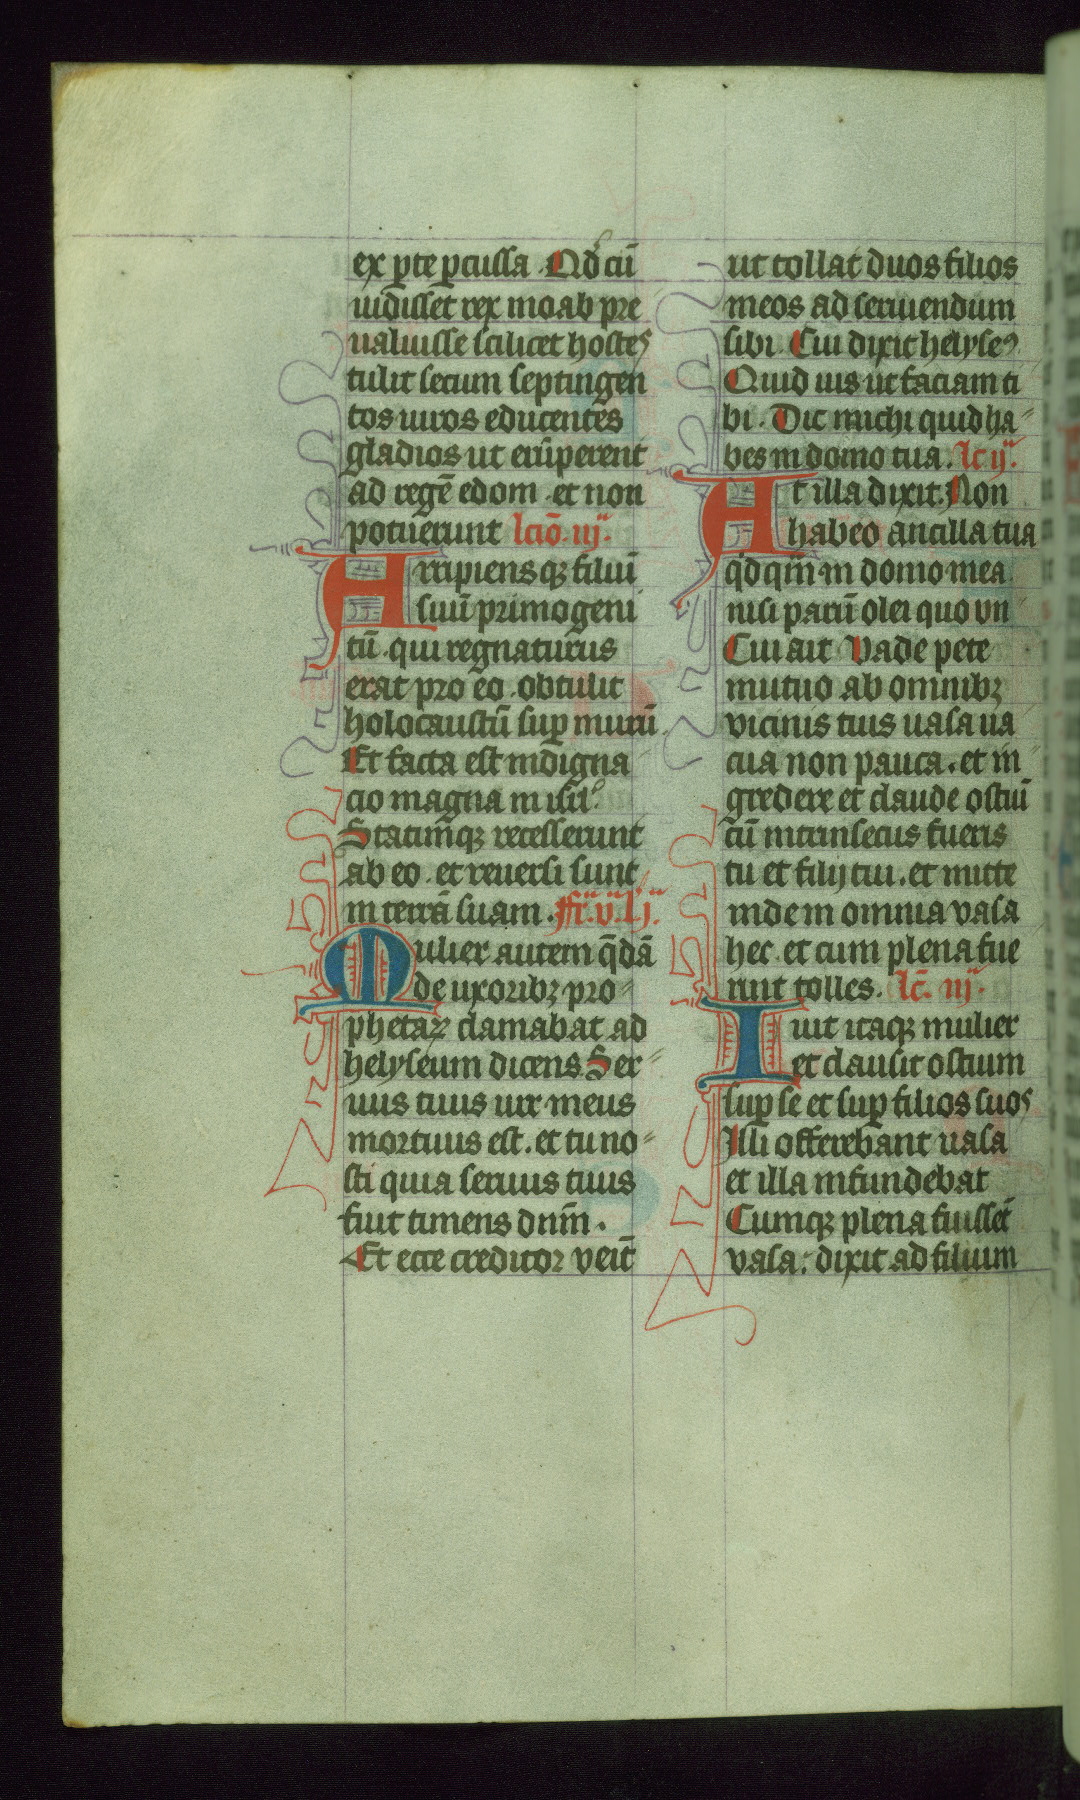 ex ꝑte ꝑcussa . Qd̕ cū
uidisset rex moab pre
ualuisse scilicet hostes
tulit secum septingen
tos uiros educentes
gladios ut erūperent
ad regē edom . et non
potuerunt lcīo . iijᵃ.
Arripiensqꝫ filiū
suū primogeni
tū . qui regnaturus
erat pro eo . obtulit
holocaustū suꝑ murū.
Et facta est indigna
cio magna in isrl̄.
Statimqꝫ recesserunt
ab eo . et reuersi sunt
in terrā suam . ffr̄. v. l̕ jᵃ.
Mulier autem q̄dā
de uxoribꝫ pro⸗
phetaꝝ clamabat ad
helyseum dicens Ser⸗
uus tuus uir meus
mortuus est . et tu no⸗
sti quia seruus tuus
fuit timens dnm̄ .
Et ecce creditor veīt
ut tollat duos filios
meos ad seruiendum
sibi . Cui dixit helyseꝰ
Quid uis ut faciam ti
bi . Dic michi quid ha⸗
bes in domo tua . lc̄ ijᵃ.
At illa dixit . Non
habeo ancilla tua
qͥdqͣm in domo mea
nisi parū olei quo vn⸗
Cui ait Vade pete
mutuo ab omnibꝫ
vicinis tuis uasa ua
cua non pauca . et in⸗
gredere et claude ostiū
cū intrinsecus fueris
tu et filij tui . et mitte
inde in omnia vasa
hec . et cum plena fue
rint tolles . lc̄. iijᵃ.
Iuit itaqꝫ mulier
et clausit ostium
suꝑ se et suꝑ filios suos
Illi offerebant uasa
et illa infundebat
Cumqꝫ plena fuissēt
vasa : dixit ad filium